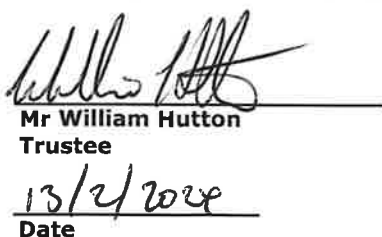 William Hutton
Mr William Hutton
Trustee
13/2/2024
Date